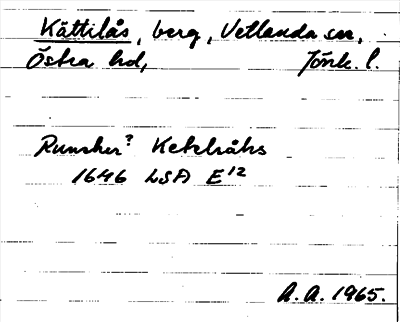 Kättilås, berg, Vetlanda sn,
Östra hd, Jönk. l.
Ketelsåhs
1646 LSA E12
A. A. 1965.